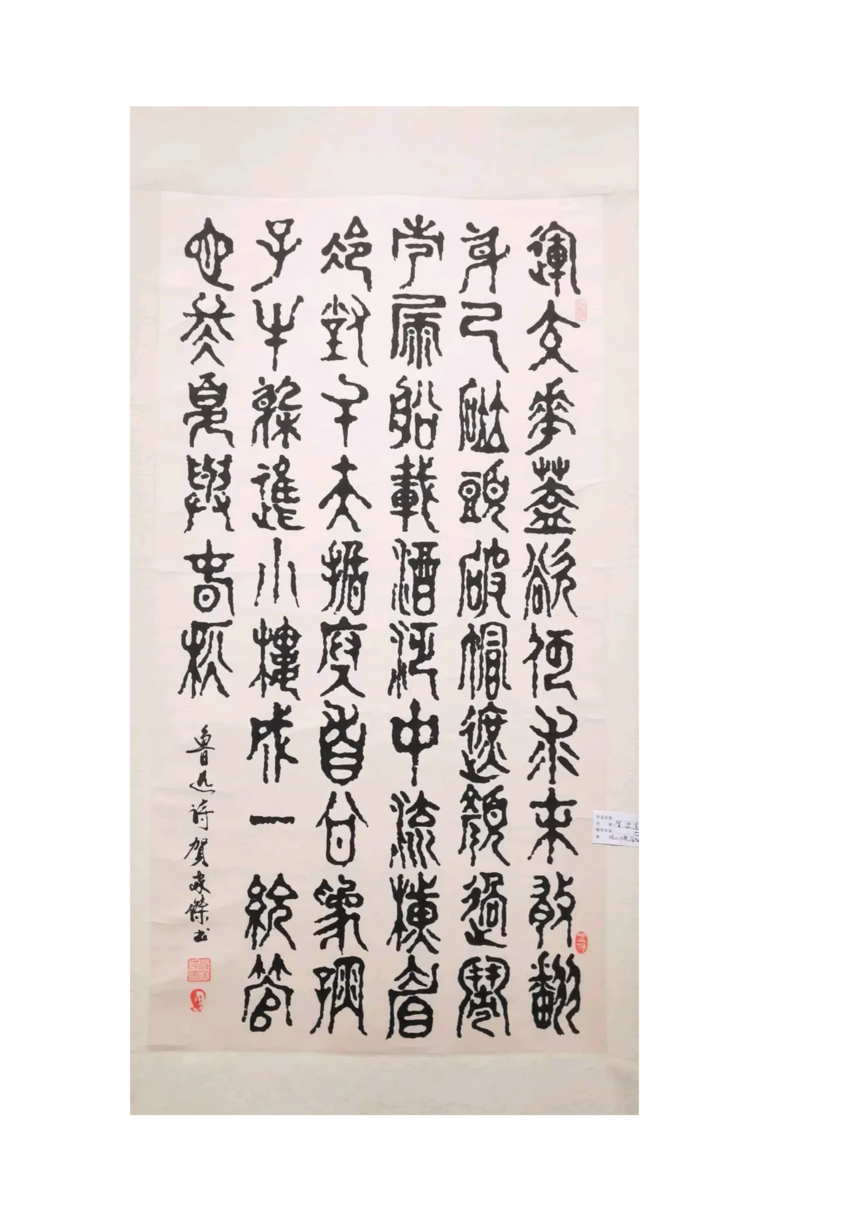 運交華蓋欲何求未敢翻
身已碰頭破帽遮顏過鬧
市屚船載酒泛中流橫眉
冷對千夫指俯首甘為孺
子牛躲進小樓成一統管
它冬夏與春秋
魯迅詩賀家傑书